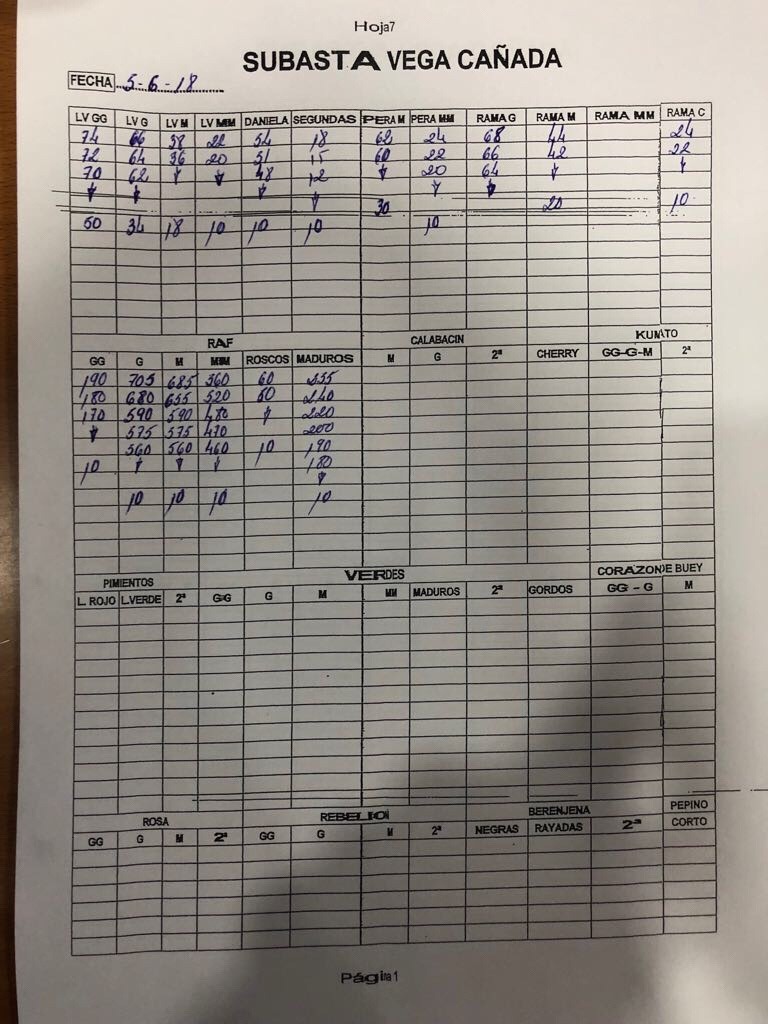 Hoja7
SUBASTA VEGA CAÑADA
FECHA 5-6-18
LV GG LV G LV M LV MM DANIELA SEGUNDAS PERA M PERA MM RAMA G RAMA M RAMA MM RAMA C
74 66 38 22 54 18 62 24 68 44 24
72 64 36 20 51 15 60 22 66 42 22
70 62 ↓ ↓ 48 12 ↓ 20 64 ↓ ↓
↓ ↓ ↓ ↓ ↓ ↓
30 20 10
50 34 18 10 10 10 10
RAF CALABACIN KUMATO
GG G M MM ROSCOS MADUROS M G 2ª CHERRY GG-G-M 2ª
190 705 685 560 60 255
180 680 655 520 50 240
170 590 590 480 ↓ 220
↓ 575 575 470 200
560 560 460 10 190
10 ↓ ↓ ↓ 180
↓
10 10 10 10
PIMIENTOS VERDES CORAZON DE BUEY
L. ROJO L.VERDE 2ª GG G M MM MADUROS 2ª GORDOS GG - G M
ROSA REBELION BERENJENA PEPINO
GG G M 2ª GG G M 2ª NEGRAS RAYADAS 2ª CORTO
Página1